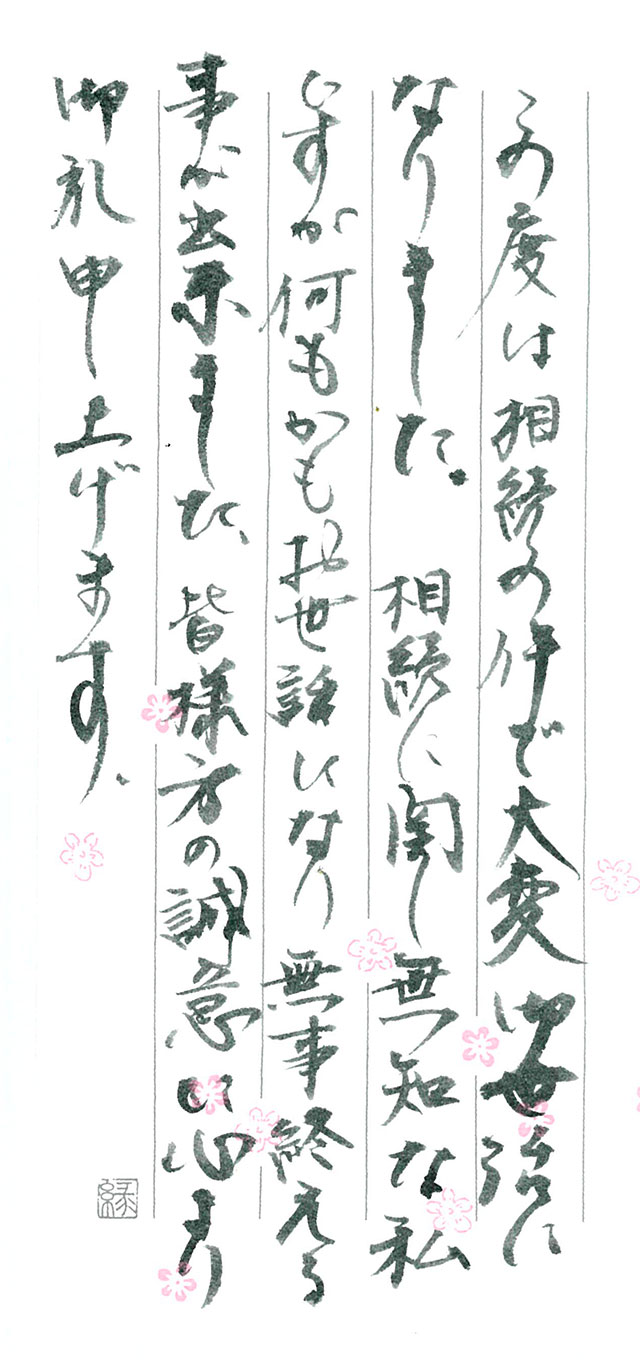 この度は相続の件で大変御世話に
なりました。相続に関し無知な私
ですが何もかもお世話になり無事終える
事が出来ました、皆様方の誠意に心より
御礼申し上げます、
縁